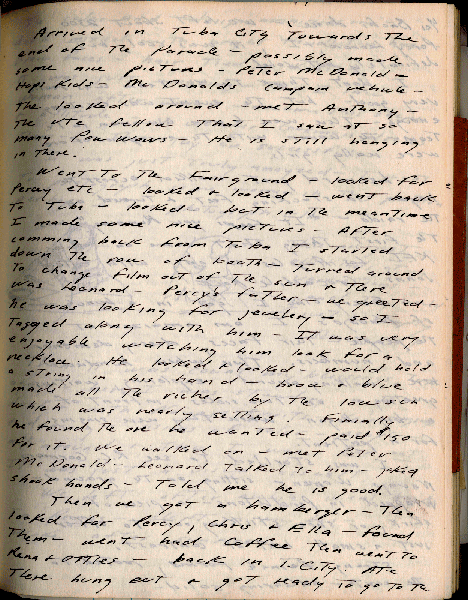 Arrived in Tuba City Towards The
end of The Parade - possibly made
some nice pictures - Peter McDonald -
Hopi Kids - McDonalds campain vehicle -
The looked around - met Anthony -
The Ute fellow That I saw at so
many Pow Wows - He is still hanging
in There.
Went To The Fairground - looked for
Percy etc - looked & looked - went back
To Tuba - looked but in the meantime
I made some nice pictures. After
comming back From Tuba I started
down The row of booth - Turned around
To change film out of The sun & There
was Leonard - Percy's father - we greeted -
he was looking for jewelery - so I
Tagged along with him - It was very
enjoyable watching him look for a
necklace. He looked & looked - would hold
a string in his hand - brow & blue
made all The richer by The low sun
which was nearly setting. Finially
he found The one he wanted - paid $150
for it. We walked on - met Peter
McDonald - Leonard Talked To him - joked
shook hands - Told me he is good.
Then we got a hamburger - Then
looked for Percy, Chris & Ella - found
Them - went had Coffee Then went to
Rena & Otties - back in T. City. Ate
There hung out & got ready To go To The